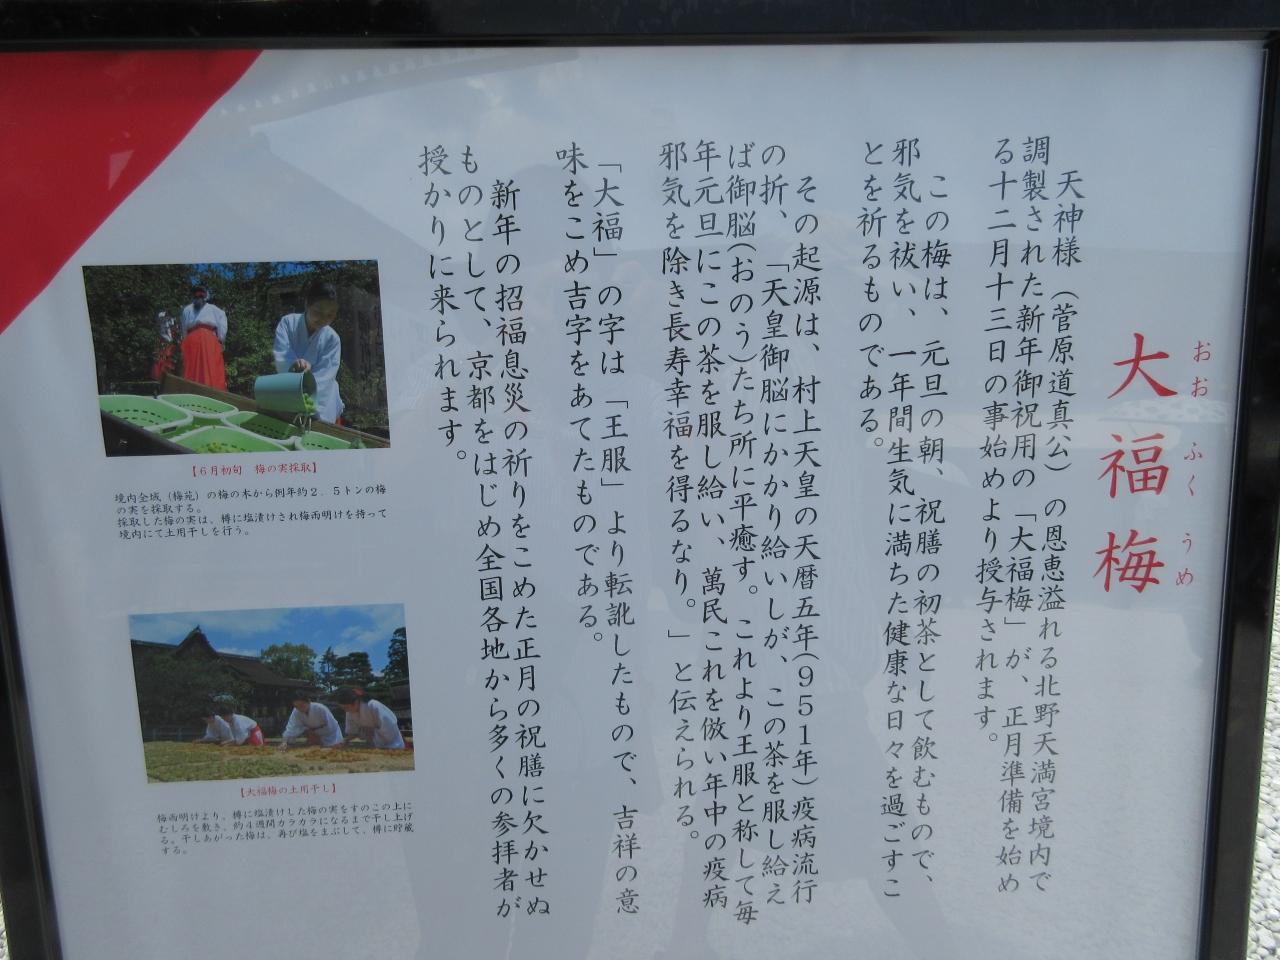 大福梅
おおふくうめ
天神様（菅原道真公）の恩恵溢れる北野天満宮境内で
調製された新年御祝用の「大福梅」が、正月準備を始め
る十二月十三日の事始めより授与されます。
この梅は、元旦の朝、祝膳の初茶として飲むもので、
邪気を祓い、一年間生気に満ちた健康な日々を過ごすこ
とを祈るものである。
その起源は、村上天皇の天暦五年（951年）疫病流行
の折、「天皇御脳にかかり給いしが、この茶を服し給え
ば御脳（おのう）たち所に平癒す。これより王服と称して毎
年元旦にこの茶を服し給い、萬民これを倣い年中の疫病
邪気を除き長寿幸福を得るなり。」と伝えられる。
「大福」の字は「王服」より転訛したもので、吉祥の意
味をこめ吉字をあてたものである。
新年の招福息災の祈りをこめた正月の祝膳に欠かせぬ
ものとして、京都をはじめ全国各地から多くの参拝者が
授かりに来られます。
【6月初旬 梅の実採取】
境内全域（梅苑）の梅の木から例年約2．5トンの梅
の実を採取する。
採取した梅の実は、樽に塩漬けされ梅雨明けを待って
境内にて土用干しを行う。
【大福梅の土用干し】
梅雨明けより、樽に塩漬けした梅の実をすのこの上に
むしろを敷き、約4週間カラカラになるまで干し上げ
る。干しあがった梅は、再び塩をまぶして、樽に貯蔵
する。